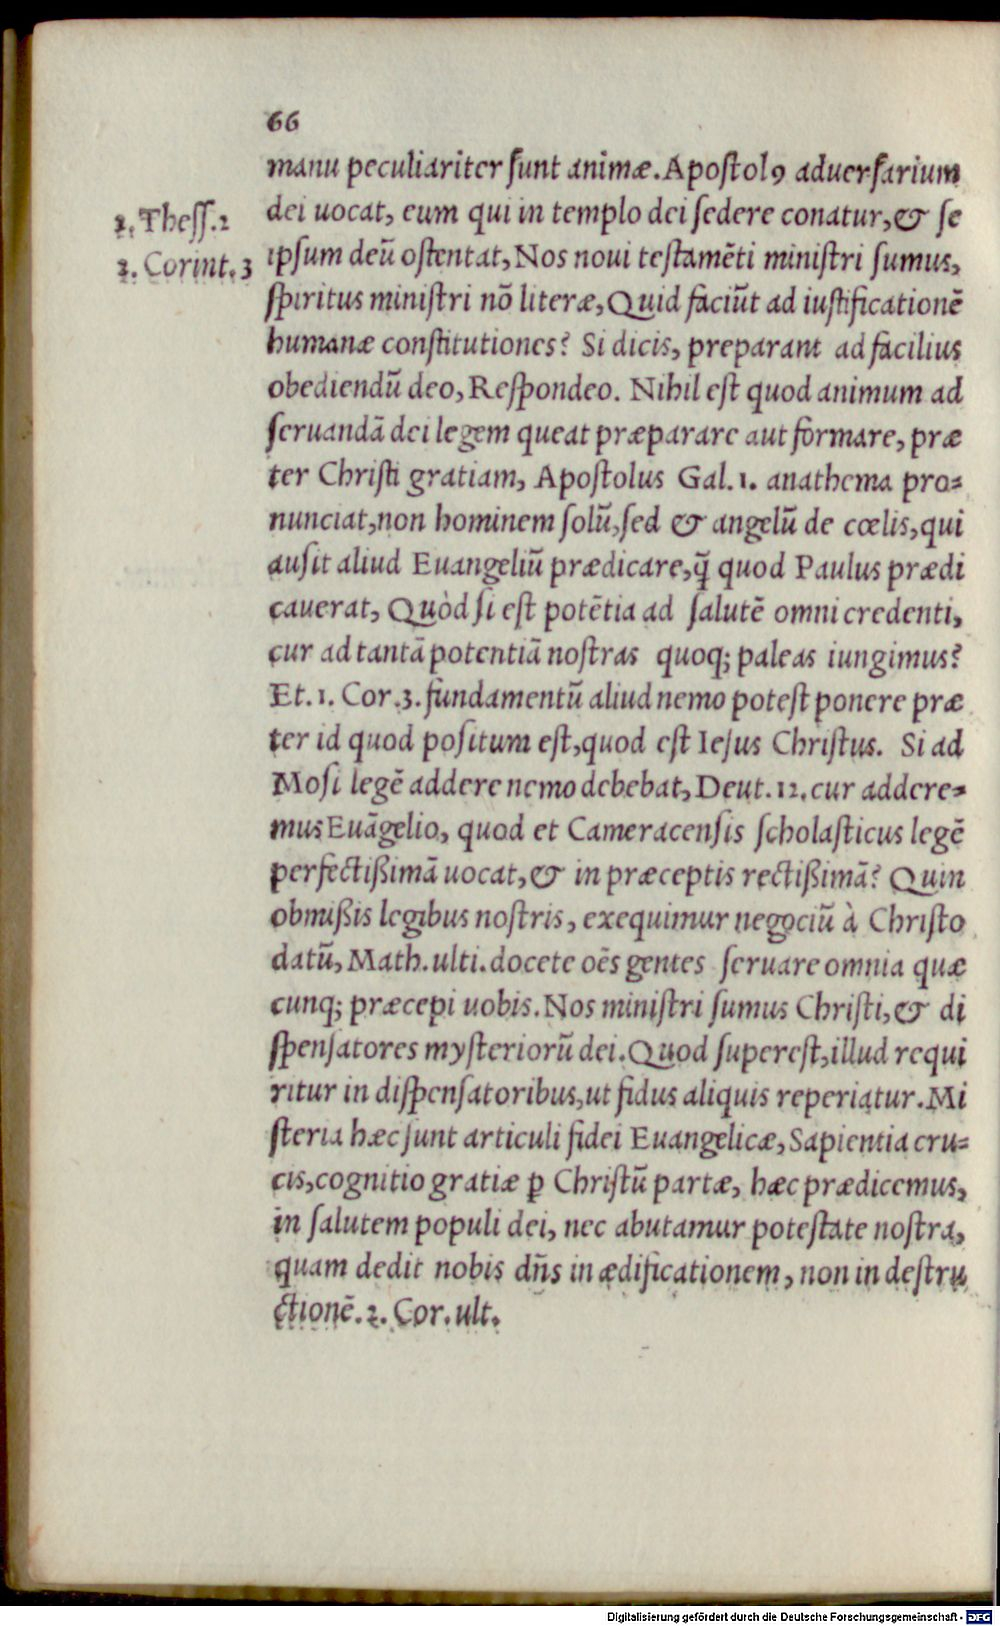 66
manu peculiariter ſunt animæ. Apoſtolꝰ aduerſarium
2. Theſſ. 2
dei uocat, eum qui in templo dei ſedere conatur, & ſe
2. Corint. 3
ipſum deū oſtentat, Nos noui teſtamēti miniſtri ſumus,
ſpiritus miniſtri nō literæ, Quid faciūt ad iuſtificationē
humanæ conſtitutiones? Si dicis, preparant ad facilius
obediendū deo, Reſpondeo. Nihil eſt quod animum ad
ſeruandā dei legem queat præparare aut formare, præ
ter Chriſti gratiam, Apoſtolus Gal. 1. anathema pro-
nunciat, non hominem ſolū, ſed & angelū de cœlis, qui
auſit aliud Euangeliū prædicare, q̃ quod Paulus prædi
cauerat, Quòd ſi eſt potētia ad ſalutē omni credenti,
cur ad tantā potentiā noſtras quoq; paleas iungimus?
Et. 1. Cor. 3. fundamentū aliud nemo poteſt ponere præ
ter id quod poſitum eſt, quod eſt Ieſus Chriſtus. Si ad
Moſi legē addere nemo debebat, Deut. 12. cur addere-
mus Euāgelio, quod et Cameracenſis ſcholaſticus legē
perfectißimā uocat, & in præceptis rectißimā? Quin
obmißis legibus noſtris, exequimur negociū à Chriſto
datū, Math. ulti. docete oēs gentes ſeruare omnia quæ
cunq; præcepi uobis. Nos miniſtri ſumus Chriſti, & di
ſpenſatores myſteriorū dei. Quod ſupereſt, illud requi
ritur in diſpenſatoribus, ut fidus aliquis reperiatur. Mi
ſteria hæc ſunt articuli fidei Euangelicæ, Sapientia cru-
cis, cognitio gratiæ ꝑ Chriſtū partæ, hæc prædicemus,
in ſalutem populi dei, nec abutamur poteſtate noſtra,
quam dedit nobis dn̄s in ædificationem, non in deſtru
ctionē. 2. Cor. ult.
Digitalisierung gefördert durch die Deutsche Forschungsgemeinschaft - DFG